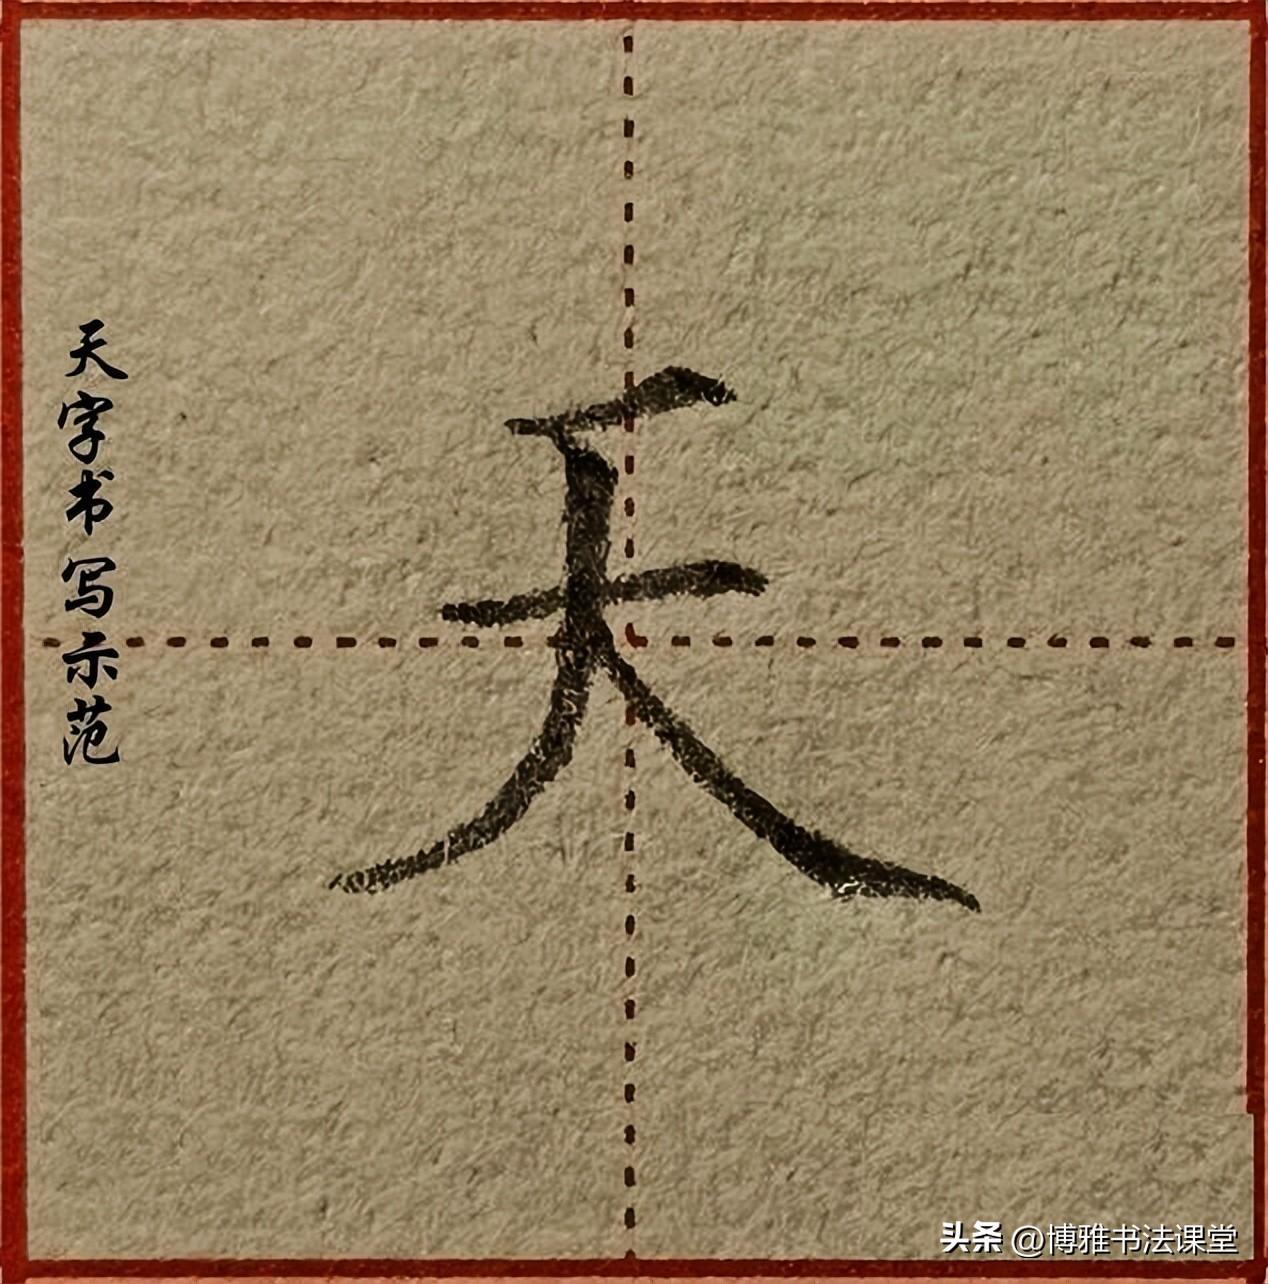 天字书写示范
天
头条 @博雅书法课堂